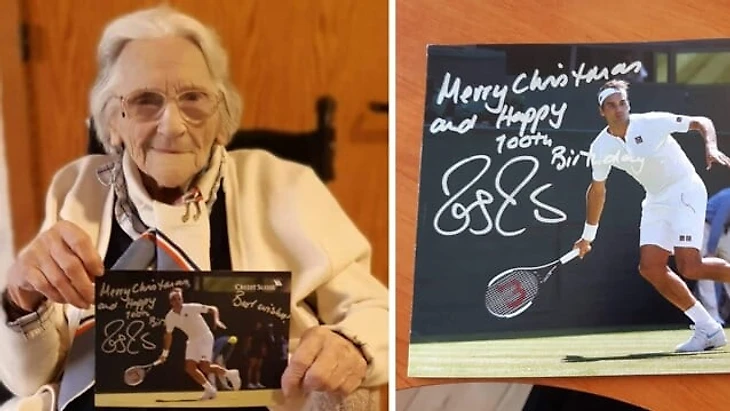 Merry Christmas
and Happy
100th
CREDIT SUISSE
Best wishes!
Merry Christmas
and Happy
100th
Birthday